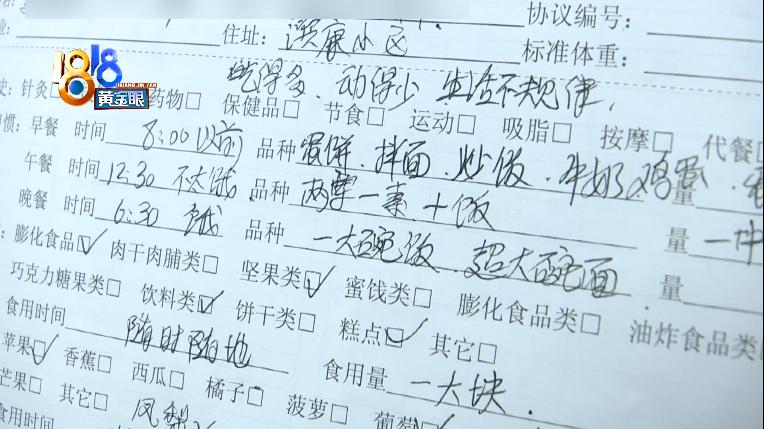 协议编号:
1818
HUANG JIN YAN
黄金眼
住址: 淏康小区 标准体重:
吃得多、动得少 生活不规律,
针灸 药物□ 保健品□ 节食□ 运动□ 吸脂□ 按摩□ 代餐□
惯: 早餐 时间 8:00以前 品种 蛋饼、拌面、炒饭、牛奶鸡蛋、 量
午餐 时间 12:30 不太饿 品种 两荤一素 + 饭 量 一中
晚餐 时间 6:30 饿 品种 一大碗饭、超大碗面 量
: 膨化食品☑ 肉干肉脯类□ 坚果类☑ 蜜饯类□ 膨化食品类□ 油炸食品类□
巧克力糖果类□ 饮料类☑ 饼干类□ 糕点☑ 其它□
食用时间 随时随地 食用量 一大块.
苹果☑ 香蕉□ 西瓜□ 橘子□ 菠萝□ 葡萄☑
芒果□ 其它□ 凤梨
食用时间